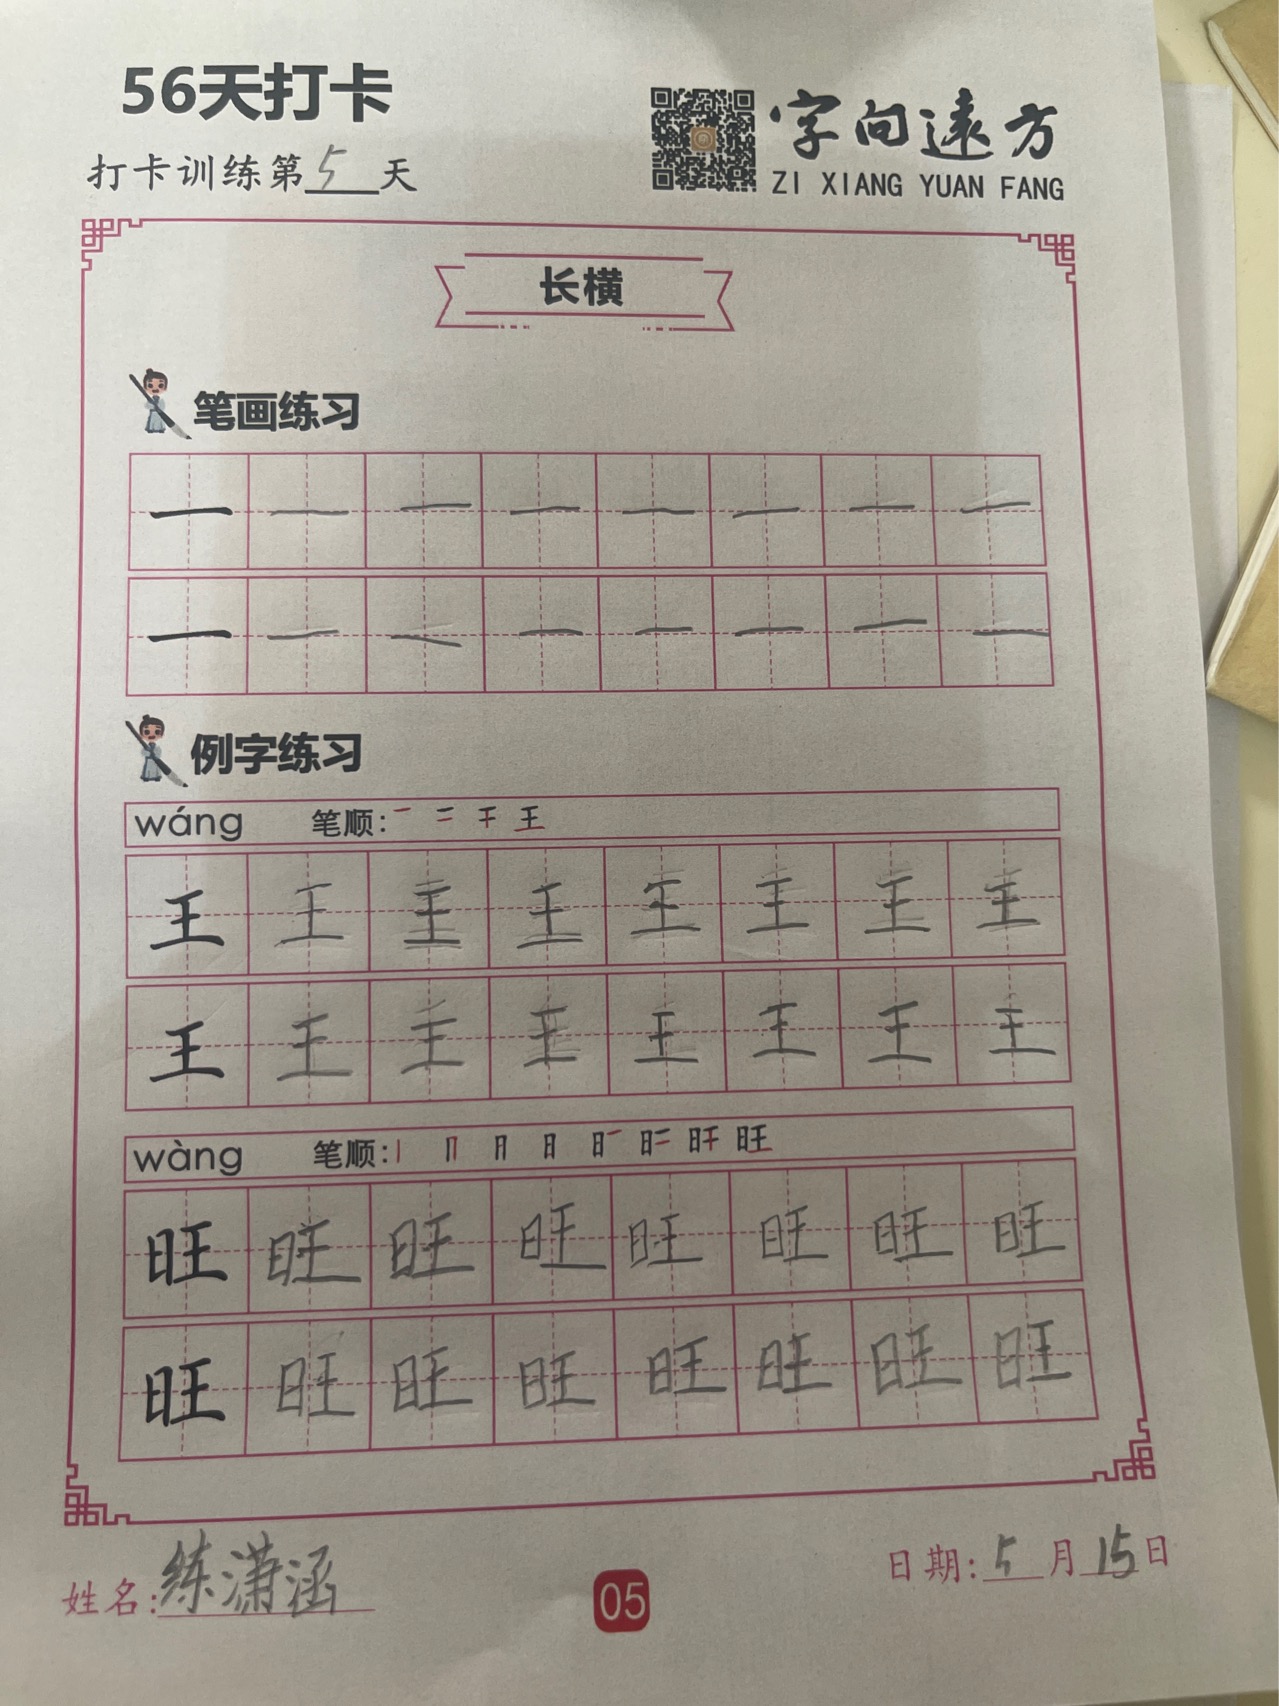 56天打卡
字向遠方
打卡训练第5天
ZI XIANG YUAN FANG
长横
笔画练习
一 一 一 一 一 一 一 一
一 一 一 一 一 一 一 一
例字练习
wáng 笔顺: 一 二 干 王
王 王 王 王 王 王 王 王
王 王 王 王 王 王 王 王
wàng 笔顺: 丨 冂 月 日 日一 日二 旰 旺
旺 旺 旺 旺 旺 旺 旺 旺
旺 旺 旺 旺 旺 旺 旺 旺
姓名:练潇涵
05
日期:5月15日